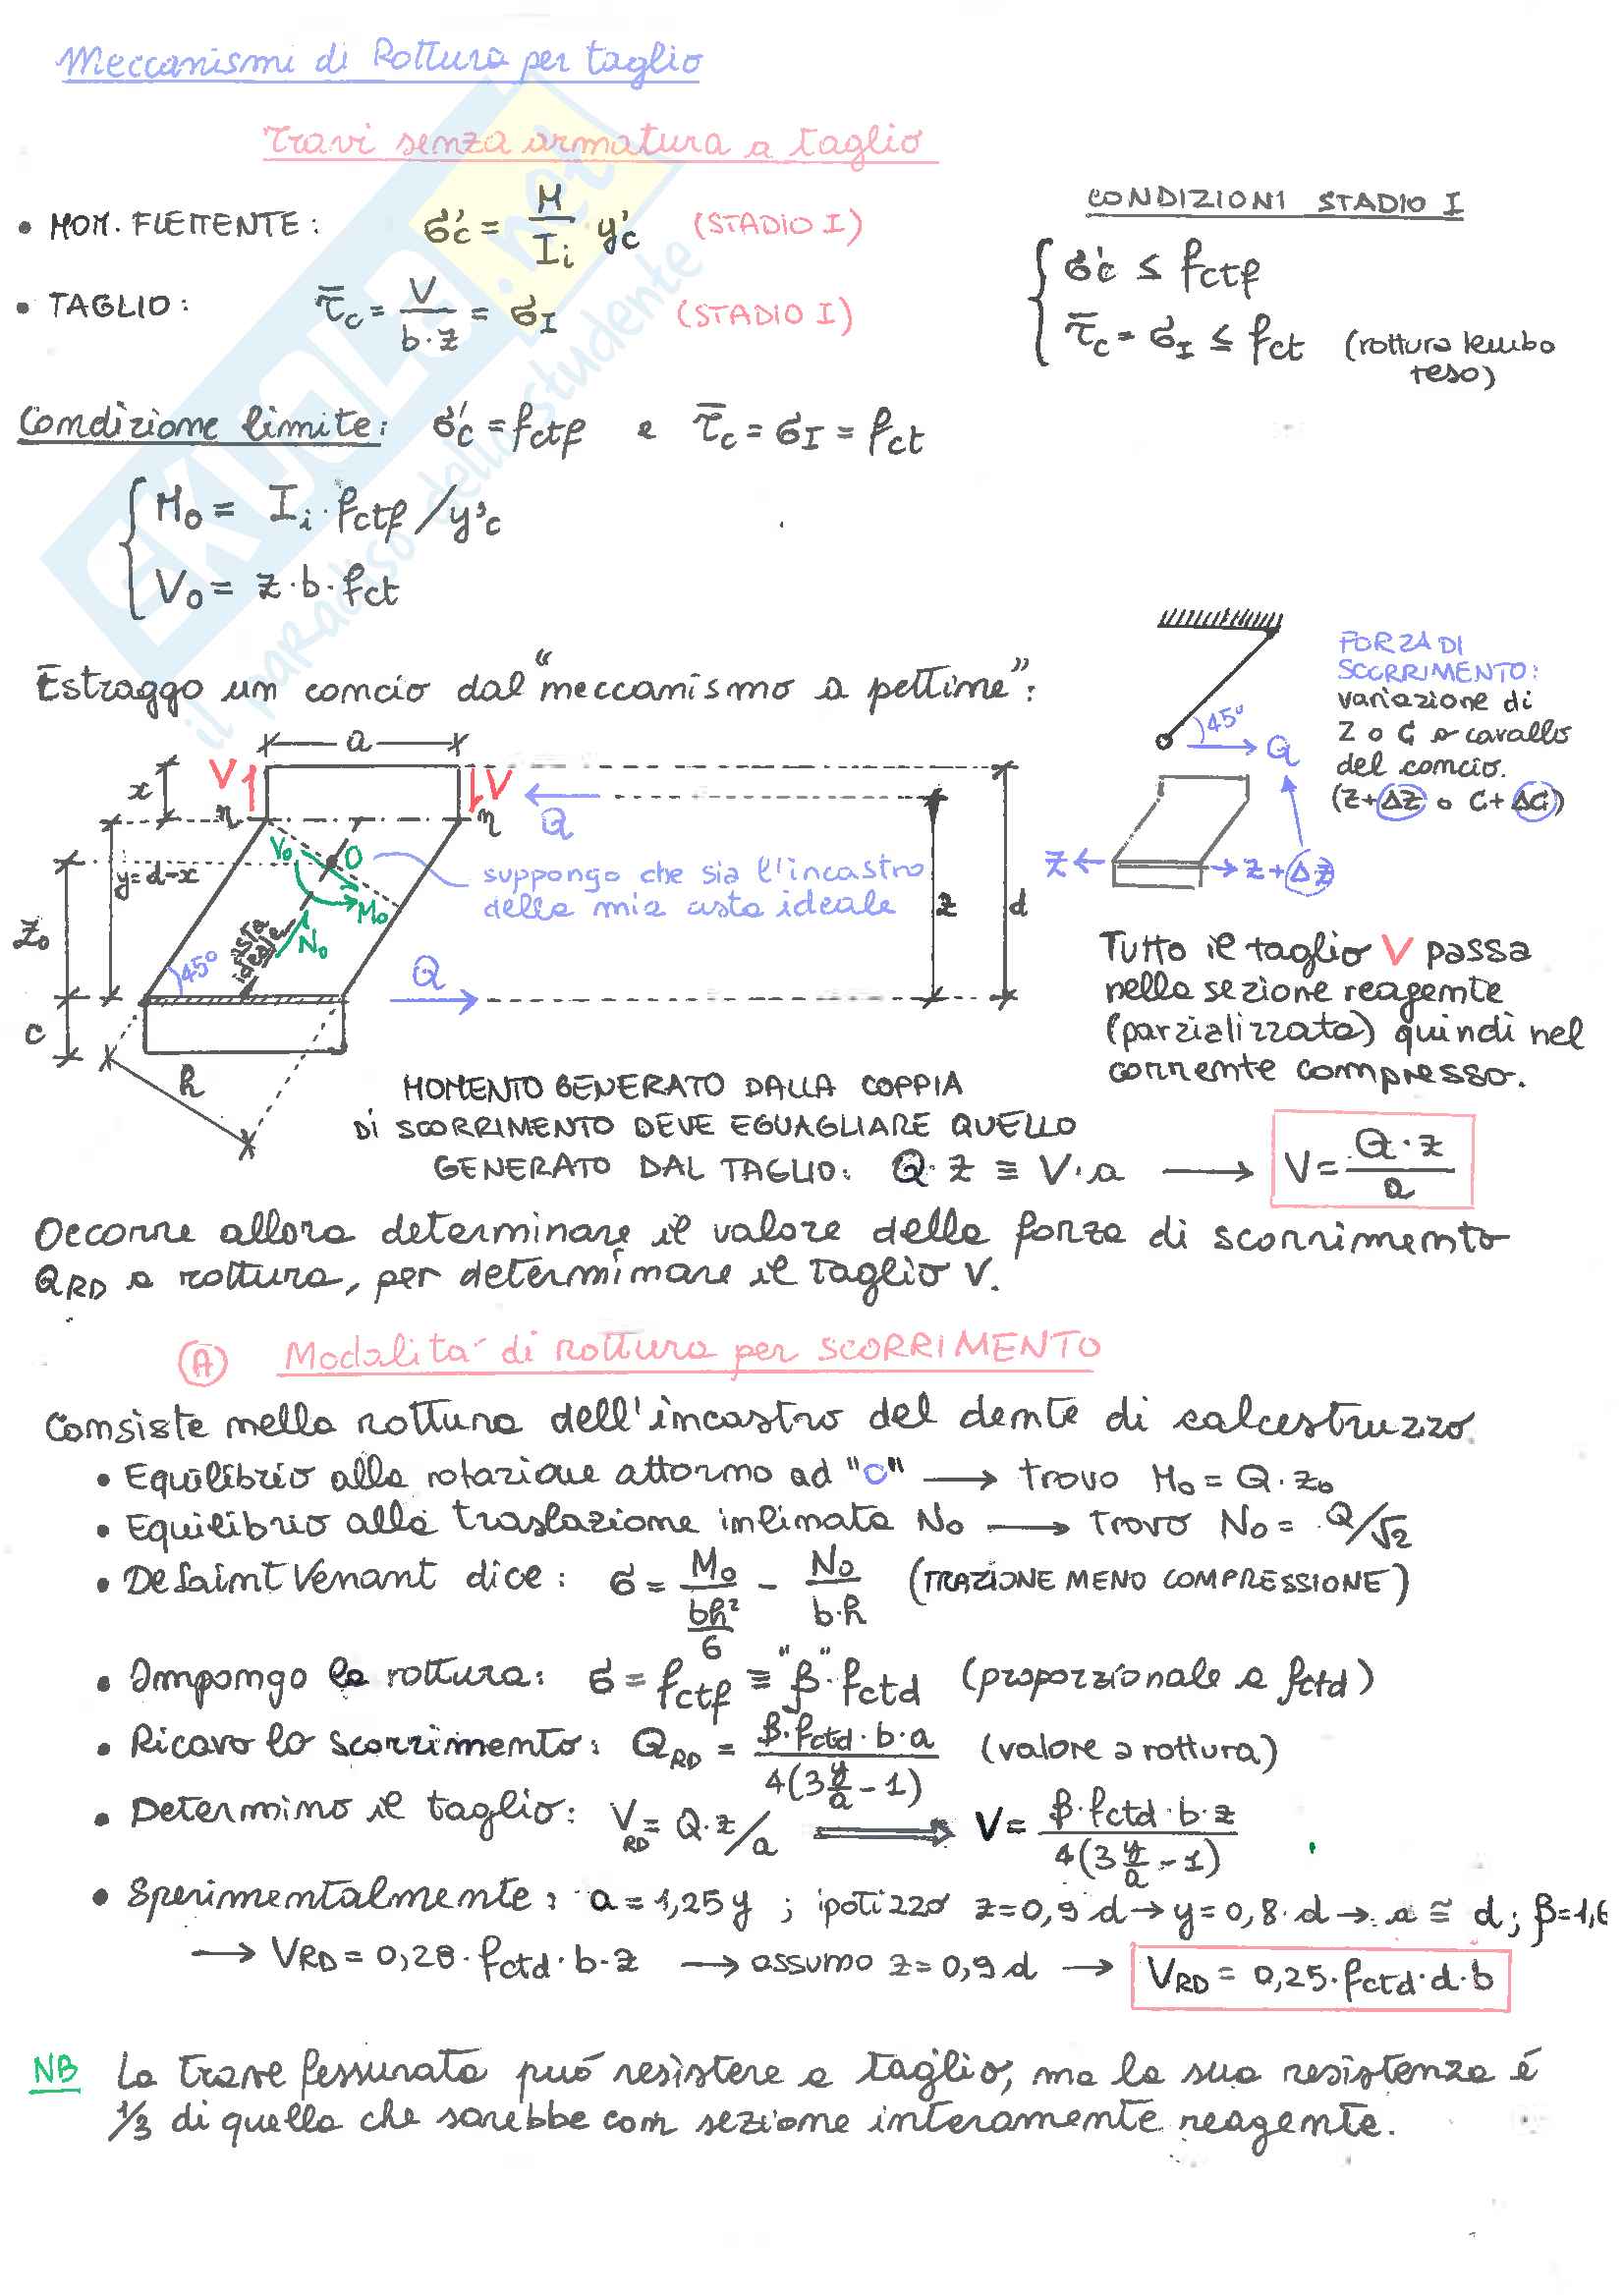 Meccanismi di Rottura per taglio
Travi senza armatura a taglio
• MOM. FLETTENTE: σ'c = M/Ii y'c (STADIO I)
• TAGLIO: τ̄c = V/(b·z) = σI (STADIO I)
CONDIZIONI STADIO I
{ σ'c ≤ fctf
τ̄c = σI ≤ fct (rottura lembo
teso)
Condizione limite: σ'c = fctf e τ̄c = σI = fct
{ M0 = Ii · fctf / y'c
V0 = z·b·fct
Estraggo un concio dal "meccanismo a pettine":
a
x
V
V
n
n
Q
y=d-x
V0
O
M0
N0
asta ideale
45°
z0
c
h
suppongo che sia l'incastro
della mia asta ideale
Q
z
d
45°
Q
FORZA DI
SCORRIMENTO:
variazione di
Z o C a cavallo
del concio.
(Z+ΔZ o C+ΔC)
Z
Z+ΔZ
Tutto il taglio V passa
nella sezione reagente
(parzializzata) quindi nel
corrente compresso.
MOMENTO GENERATO DALLA COPPIA
DI SCORRIMENTO DEVE EGUAGLIARE QUELLO
GENERATO DAL TAGLIO: Q·z ≡ V·a → V = Q·z/a
Occorre allora determinare il valore della forza di scorrimento
QRD a rottura, per determinare il taglio V.
(A) Modalità di rottura per SCORRIMENTO
Consiste nella rottura dell'incastro del dente di calcestruzzo.
• Equilibrio alla rotazione attorno ad "O" → trovo M0 = Q·z0
• Equilibrio alla traslazione inlinata N0 → trovo N0 = Q/√2
• De Saint Venant dice: σ = M0/(bh²/6) - N0/(b·h) (TRAZIONE MENO COMPRESSIONE)
• Impongo la rottura: σ = fctf ≡ "β" · fctd (proporzionale a fctd)
• Ricavo lo scorrimento: QRD = β·fctd·b·a / 4(3 y/a - 1) (valore a rottura)
• Determino il taglio: VRD = Q·z/a ⟹ V = β·fctd·b·z / 4(3 y/a - 1)
• Sperimentalmente: a=1,25y ; ipotizzo z=0,9 d → y=0,8·d → a ≅ d; β=1,6
→ VRD = 0,28·fctd·b·z → assumo z=0,9d → VRD = 0,25·fctd·d·b
NB La trave fessurata può resistere a taglio, ma la sua resistenza è
1/3 di quella che sarebbe con sezione interamente reagente.
SKUOLA.net
il paradiso dello studente